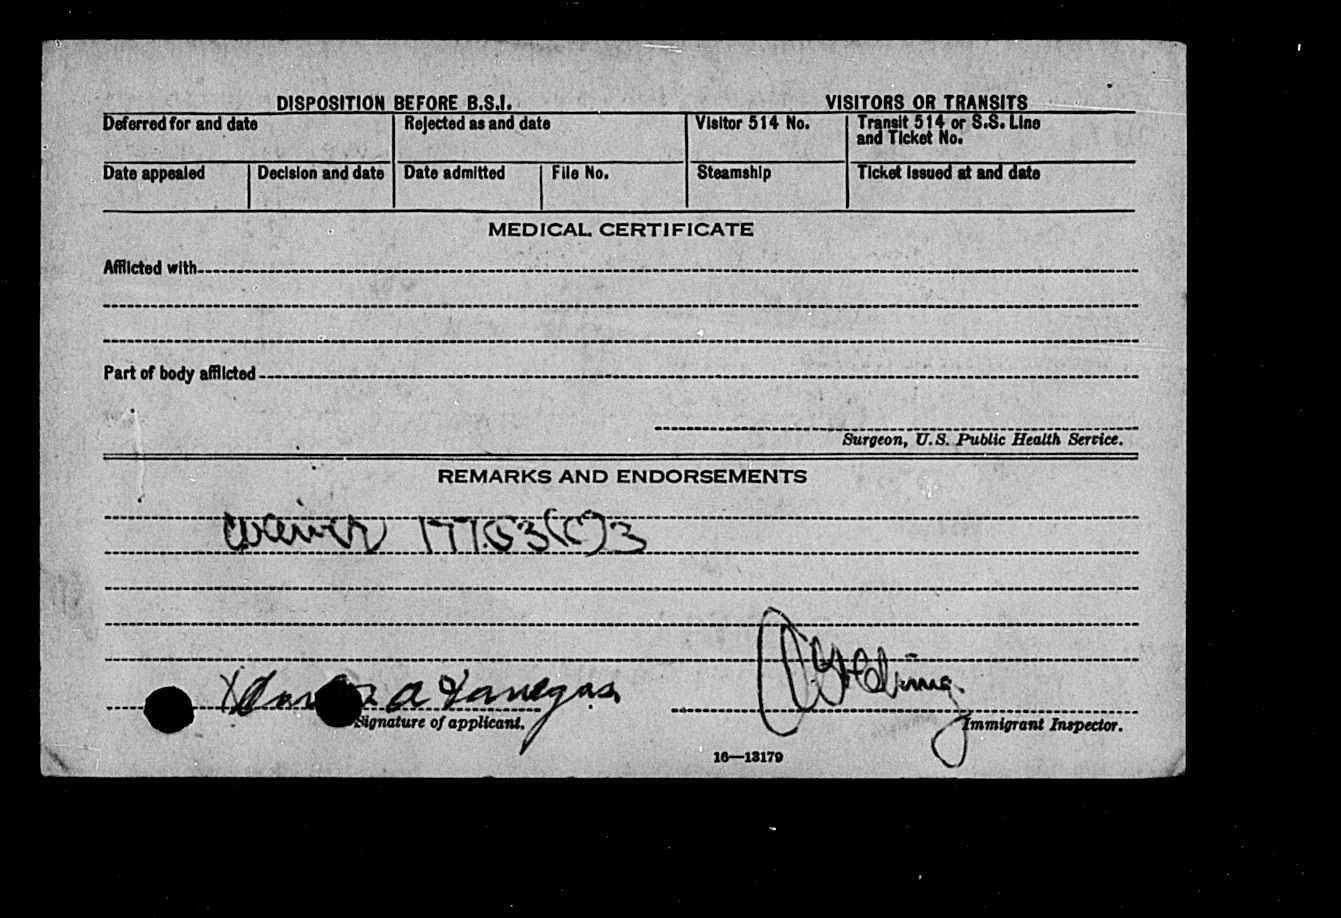 DISPOSITION BEFORE B.S.I. VISITORS OR TRANSITS
Deferred for and date Rejected as and date Visitor 514 No. Transit 514 or S.S. Line
and Ticket No.
Date appealed Decision and date Date admitted File No. Steamship Ticket issued at and date
MEDICAL CERTIFICATE
Afflicted with
Part of body afflicted
Surgeon, U.S. Public Health Service.
REMARKS AND ENDORSEMENTS
Waiver 177.53(C)3
a Vanegas
Signature of applicant. Immigrant Inspector.
16—13179